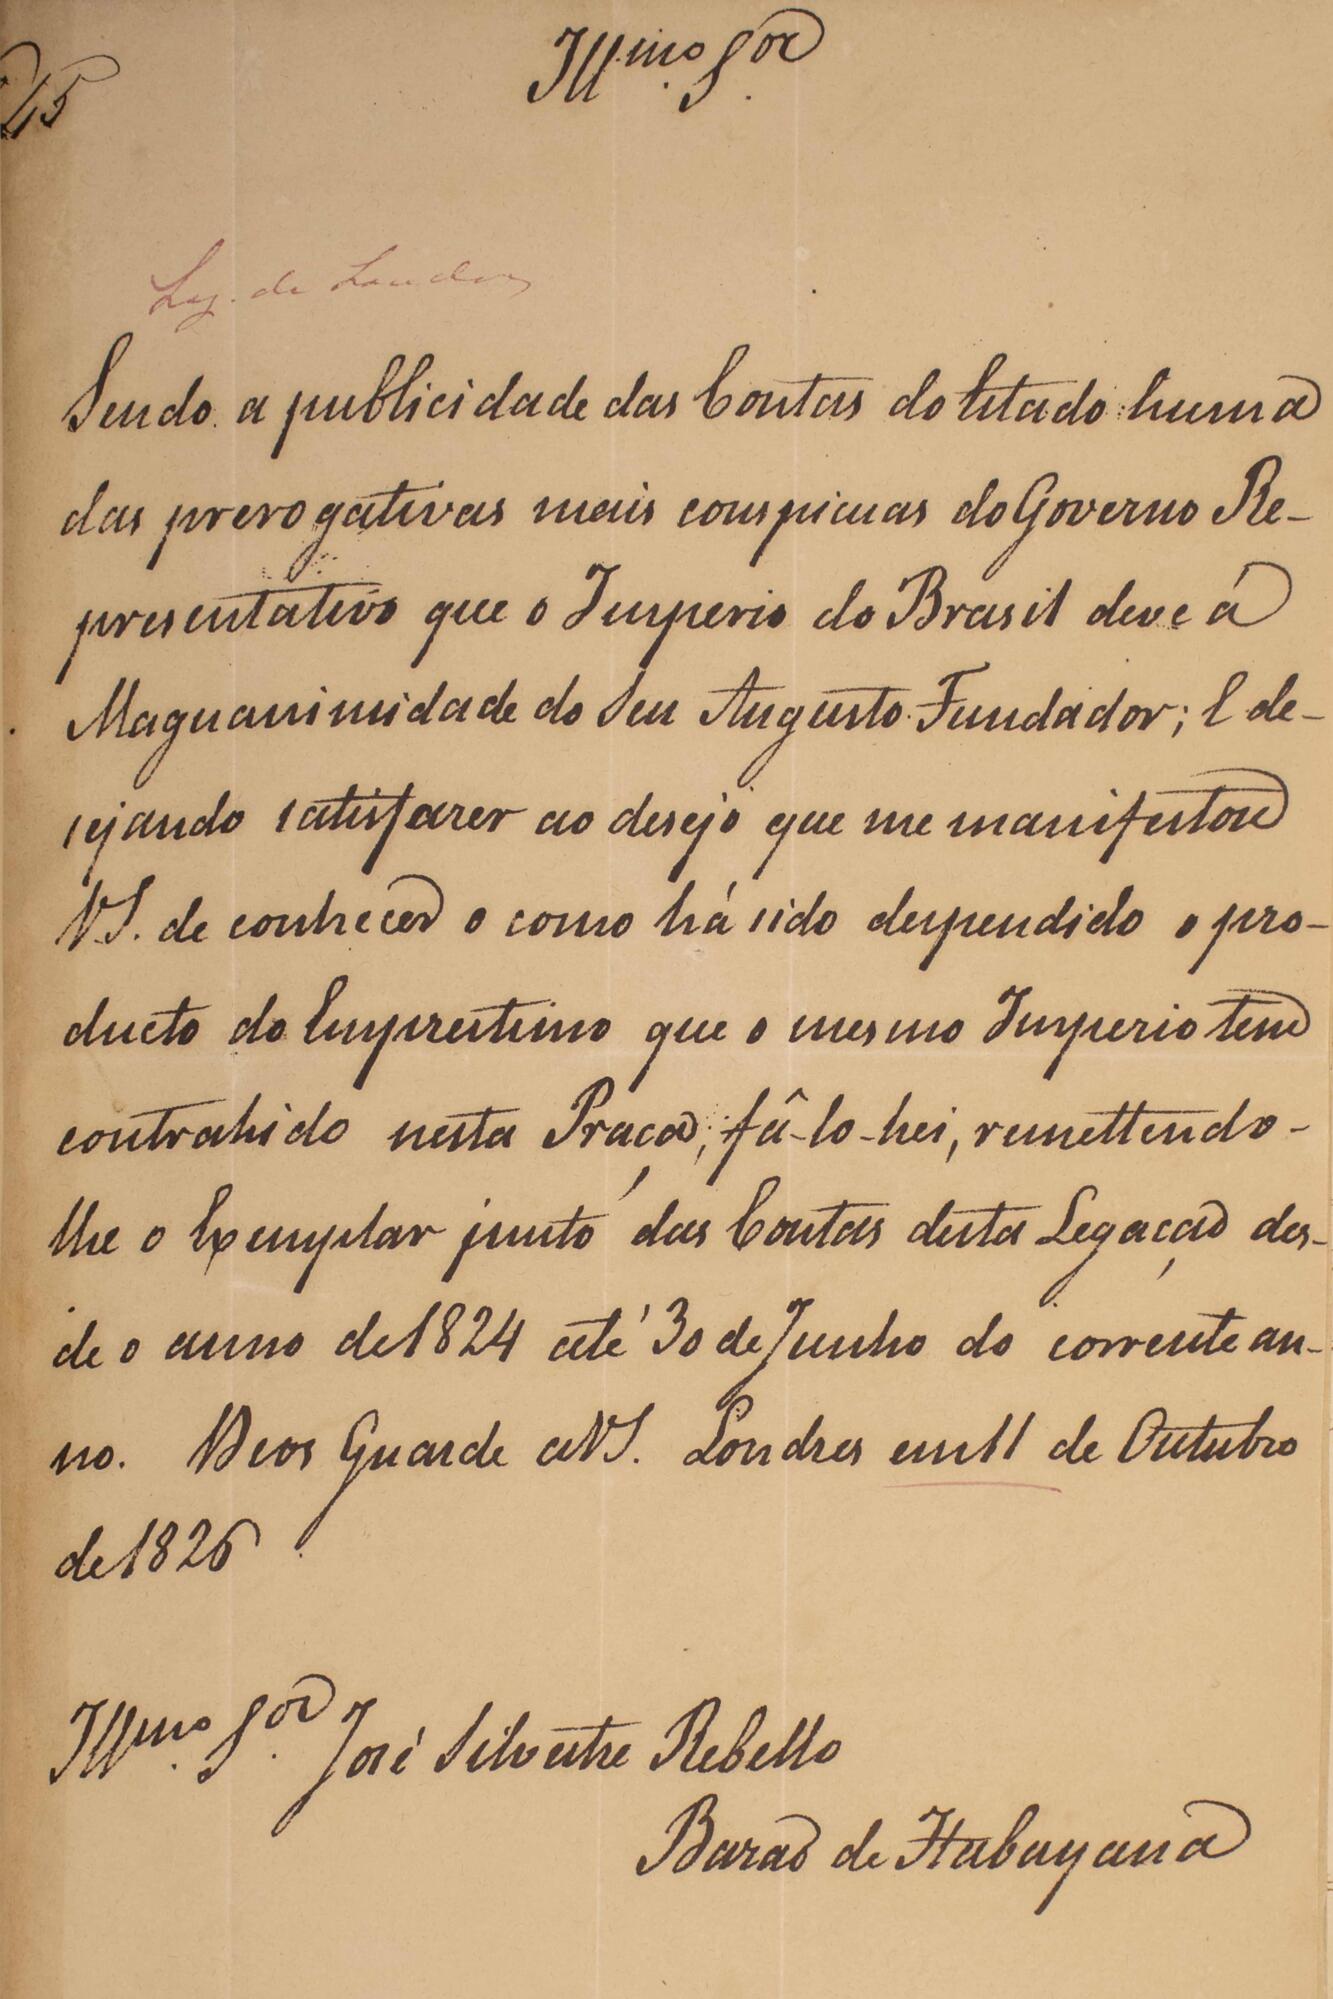 Illmo. Sor.
25
Leg. de Londres
Sendo a publicidade das Contas do Estado huma
das prerogativas mais conspicuas do Governo Re-
presentativo que o Imperio do Brasil deve á
Magnanimidade do Seu Augusto Fundador; E de-
sejando satisfazer ao desejo que me manifestou
V.S. de conhecer o como há sido despendido o pro-
ducto do Emprestimo que o mesmo Imperio tem
contrahido nesta Praça, fâ-lo-hei, remettendo-
lhe o Exemplar junto das Contas desta Legação des-
de o anno de 1824 até 30 de Junho do corrente an-
no. Deos Guarde a V.S. Londres em 11 de Outubro
de 1826
Illmo. Sor. José Silvestre Rebello
Barão de Itabayana